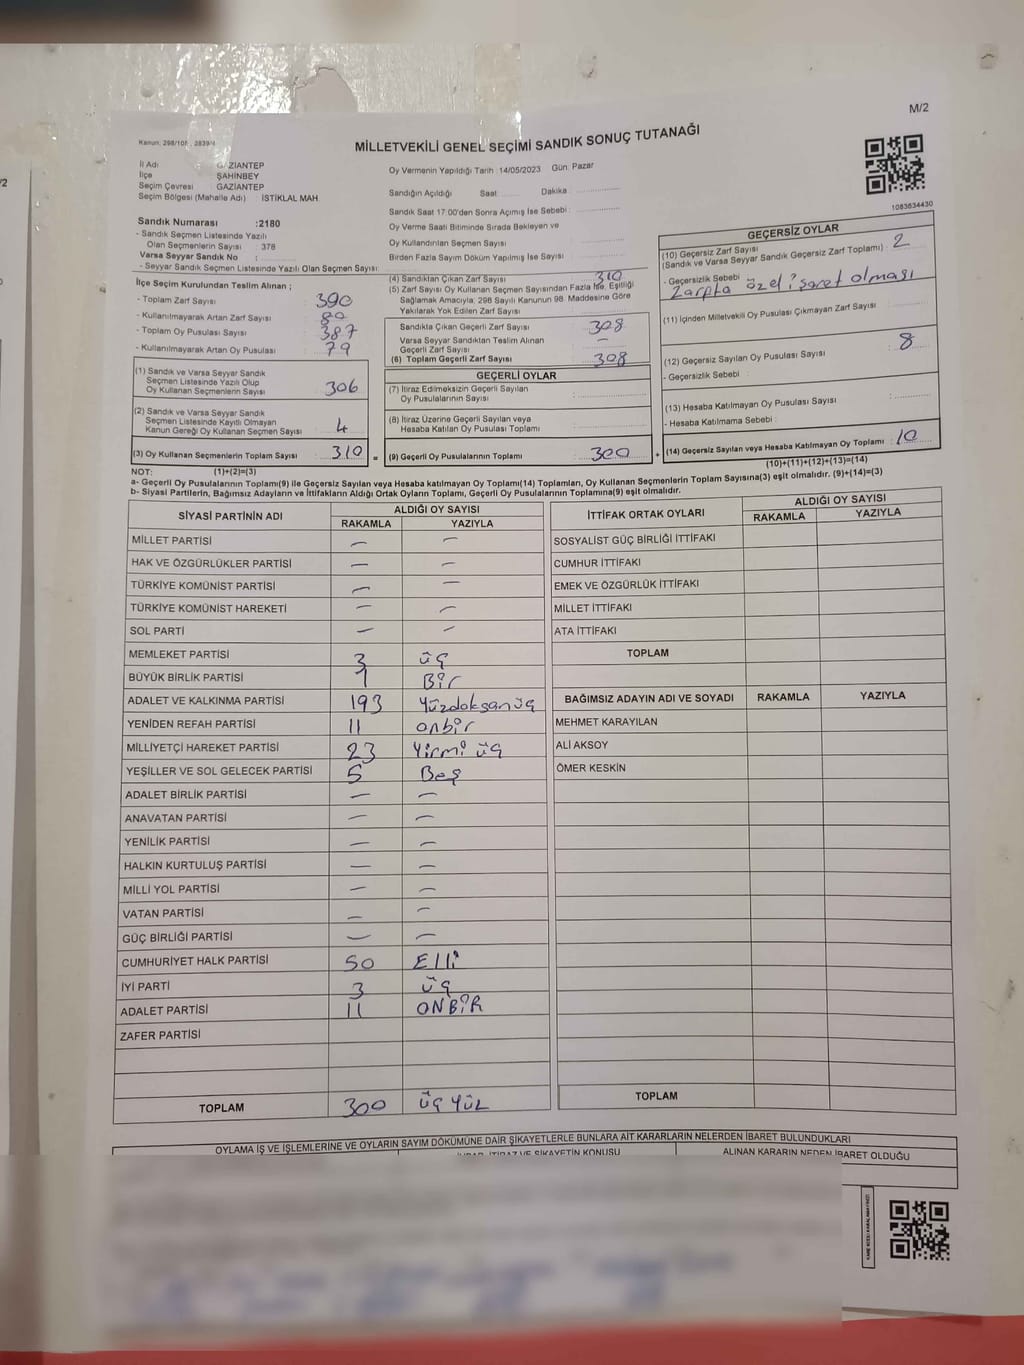 M/2
MİLLETVEKİLİ GENEL SEÇİMİ SANDIK SONUÇ TUTANAĞI
İl Adı : GAZİANTEP
İlçe ŞAHİNBEY
Seçim Çevresi GAZİANTEP
Seçim Bölgesi (Mahalle Adı) İSTİKLAL MAH.
Sandık Numarası :2180
- Sandık Seçmen Listesinde Yazılı
Olan Seçmenlerin Sayısı : 378
Varsa Seyyar Sandık No :
- Seyyar Sandık Seçmen Listesinde Yazılı Olan Seçmen Sayısı:
Oy Vermenin Yapıldığı Tarih : 14/05/2023 Gün: Pazar
Sandığın Açıldığı Saat: Dakika :
Sandık Saat 17:00'den Sonra Açımış İse Sebebi :
Oy Verme Saati Bitiminde Sırada Bekleyen ve
Oy Kullandırılan Seçmen Sayısı
Birden Fazla Sayım Döküm Yapılmış İse Sayısı
1083634430
İlçe Seçim Kurulundan Teslim Alınan ;
- Toplam Zarf Sayısı 390
- Kullanılmayarak Artan Zarf Sayısı 80
- Toplam Oy Pusulası Sayısı 387
- Kullanılmayarak Artan Oy Pusulası 79
(1) Sandık ve Varsa Seyyar Sandık
Seçmen Listesinde Yazılı Olup
Oy Kullanan Seçmenlerin Sayısı 306
(2) Sandık ve Varsa Seyyar Sandık
Seçmen Listesinde Kayıtlı Olmayan
Kanun Gereği Oy Kullanan Seçmen Sayısı 4
(3) Oy Kullanan Seçmenlerin Toplam Sayısı 310 =
(4) Sandıktan Çıkan Zarf Sayısı 310
(5) Zarf Sayısı Oy Kullanan Seçmen Sayısından Fazla İse, Eşitliği
Sağlamak Amacıyla, 298 Sayılı Kanunun 98. Maddesine Göre
Yakılarak Yok Edilen Zarf Sayısı
Sandıkta Çıkan Geçerli Zarf Sayısı 308
Varsa Seyyar Sandıktan Teslim Alınan
Geçerli Zarf Sayısı —
(6) Toplam Geçerli Zarf Sayısı 308
GEÇERLİ OYLAR
(7) İtiraz Edilmeksizin Geçerli Sayılan
Oy Pusulalarının Sayısı :
(8) İtiraz Üzerine Geçerli Sayılan veya
Hesaba Katılan Oy Pusulası Toplamı :
(9) Geçerli Oy Pusulalarının Toplamı : 300 +
GEÇERSİZ OYLAR
(10) Geçersiz Zarf Sayısı
(Sandık ve Varsa Seyyar Sandık Geçersiz Zarf Toplamı) : 2
- Geçersizlik Sebebi :
Zarfta özel işaret olması
(11) İçinden Milletvekili Oy Pusulası Çıkmayan Zarf Sayısı
(12) Geçersiz Sayılan Oy Pusulası Sayısı 8
- Geçersizlik Sebebi :
(13) Hesaba Katılmayan Oy Pusulası Sayısı
- Hesaba Katılmama Sebebi :
(14) Geçersiz Sayılan veya Hesaba Katılmayan Oy Toplamı : 10
NOT: (1)+(2)=(3)
(10)+(11)+(12)+(13)=(14)
a- Geçerli Oy Pusulalarının Toplamı(9) ile Geçersiz Sayılan veya Hesaba katılmayan Oy Toplamı(14) Toplamları, Oy Kullanan Seçmenlerin Toplam Sayısına(3) eşit olmalıdır. (9)+(14)=(3)
b- Siyasi Partilerin, Bağımsız Adayların ve İttifakların Aldığı Ortak Oyların Toplamı, Geçerli Oy Pusulalarının Toplamına(9) eşit olmalıdır.
SİYASİ PARTİNİN ADI ALDIĞI OY SAYISI
RAKAMLA YAZIYLA
MİLLET PARTİSİ — —
HAK VE ÖZGÜRLÜKLER PARTİSİ — —
TÜRKİYE KOMÜNİST PARTİSİ — —
TÜRKİYE KOMÜNİST HAREKETİ — —
SOL PARTİ — —
MEMLEKET PARTİSİ 3 üç
BÜYÜK BİRLİK PARTİSİ 1 Bir
ADALET VE KALKINMA PARTİSİ 193 Yüzdoksanüç
YENİDEN REFAH PARTİSİ 11 onbir
MİLLİYETÇİ HAREKET PARTİSİ 23 Yirmi üç
YEŞİLLER VE SOL GELECEK PARTİSİ 5 Beş
ADALET BİRLİK PARTİSİ — —
ANAVATAN PARTİSİ — —
YENİLİK PARTİSİ — —
HALKIN KURTULUŞ PARTİSİ — —
MİLLİ YOL PARTİSİ — —
VATAN PARTİSİ — —
GÜÇ BİRLİĞİ PARTİSİ — —
CUMHURİYET HALK PARTİSİ 50 Elli
İYİ PARTİ 3 üç
ADALET PARTİSİ 11 ONBİR
ZAFER PARTİSİ
TOPLAM 300 üç YÜZ
İTTİFAK ORTAK OYLARI ALDIĞI OY SAYISI
RAKAMLA YAZIYLA
SOSYALİST GÜÇ BİRLİĞİ İTTİFAKI
CUMHUR İTTİFAKI
EMEK VE ÖZGÜRLÜK İTTİFAKI
MİLLET İTTİFAKI
ATA İTTİFAKI
TOPLAM
BAĞIMSIZ ADAYIN ADI VE SOYADI RAKAMLA YAZIYLA
MEHMET KARAYILAN
ALİ AKSOY
ÖMER KESKİN
TOPLAM
OYLAMA İŞ VE İŞLEMLERİNE VE OYLARIN SAYIM DÖKÜMÜNE DAİR ŞİKAYETLERLE BUNLARA AİT KARARLARIN NELERDEN İBARET BULUNDUKLARI
ALINAN KARARIN NEDEN İBARET OLDUĞU